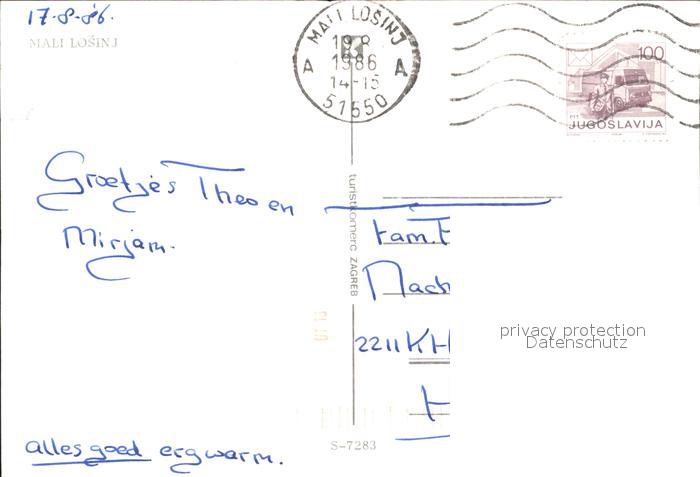 17-8-86.
MALI LOŠINJ
MALI LOŠINJ
1986
14-15
A A
51550
100
JUGOSLAVIJA
Groetjes Theo en
Mirjam.
turistkomerc ZAGREB
Fam.
2211KH
privacy protection
Datenschutz
alles goed erg warm.
S-7283